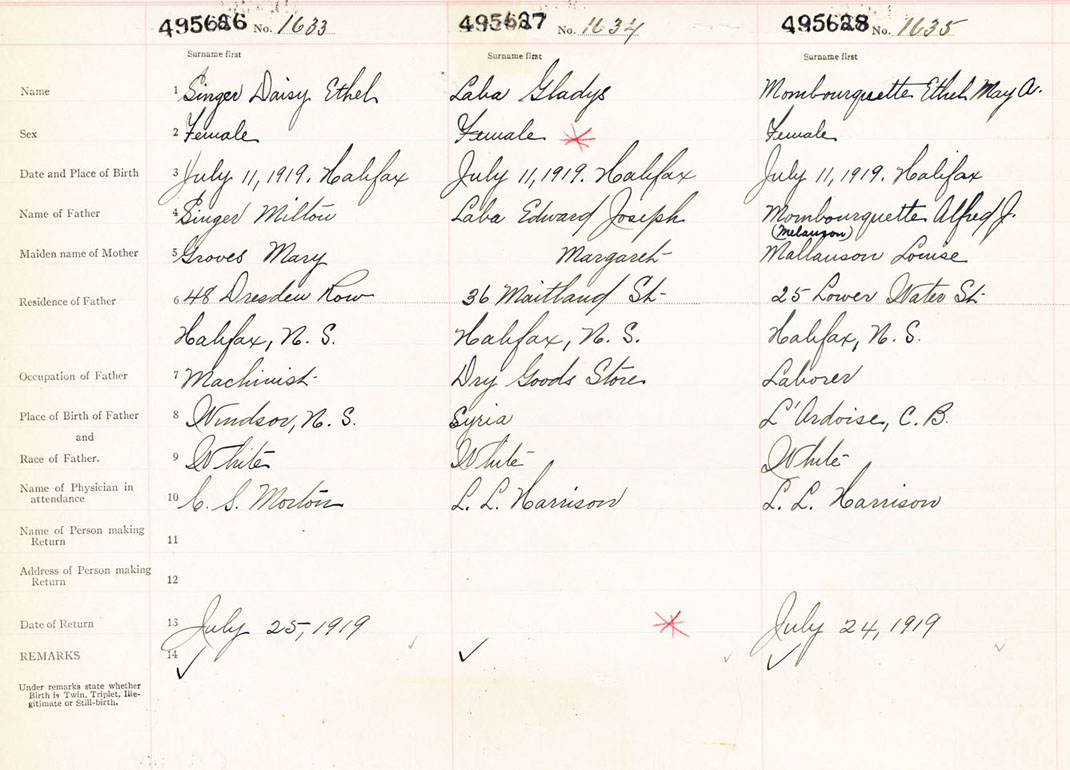 495626 No. 1633 495627 No. 1634 495628 No. 1635
Surname first Surname first Surname first
Name 1 Singer Daisy Ethel Laba Gladys Mombourquette Ethel May A.
Sex 2 Female Female Female
Date and Place of Birth 3 July 11, 1919. Halifax July 11, 1919. Halifax July 11, 1919. Halifax
Name of Father 4 Singer Milton Laba Edward Joseph Mombourquette Alfred J.
(Melanson)
Maiden name of Mother 5 Groves Mary Margaret Mallanson Louise
Residence of Father 6 48 Dresden Row 36 Maitland St 25 Lower Water St
Halifax, N. S. Halifax, N. S. Halifax, N. S.
Occupation of Father 7 Machinist Dry Goods Store Laborer
Place of Birth of Father 8 Windsor, N. S. Syria L'Ardoise, C. B.
and
Race of Father. 9 White White White
Name of Physician in
attendance 10 C. S. Morton L. L. Harrison L. L. Harrison
Name of Person making
Return 11
Address of Person making
Return 12
Date of Return 13 July 25, 1919 July 24, 1919
REMARKS 14
Under remarks state whether
Birth is Twin, Triplet, Ille-
gitimate or Still-birth.